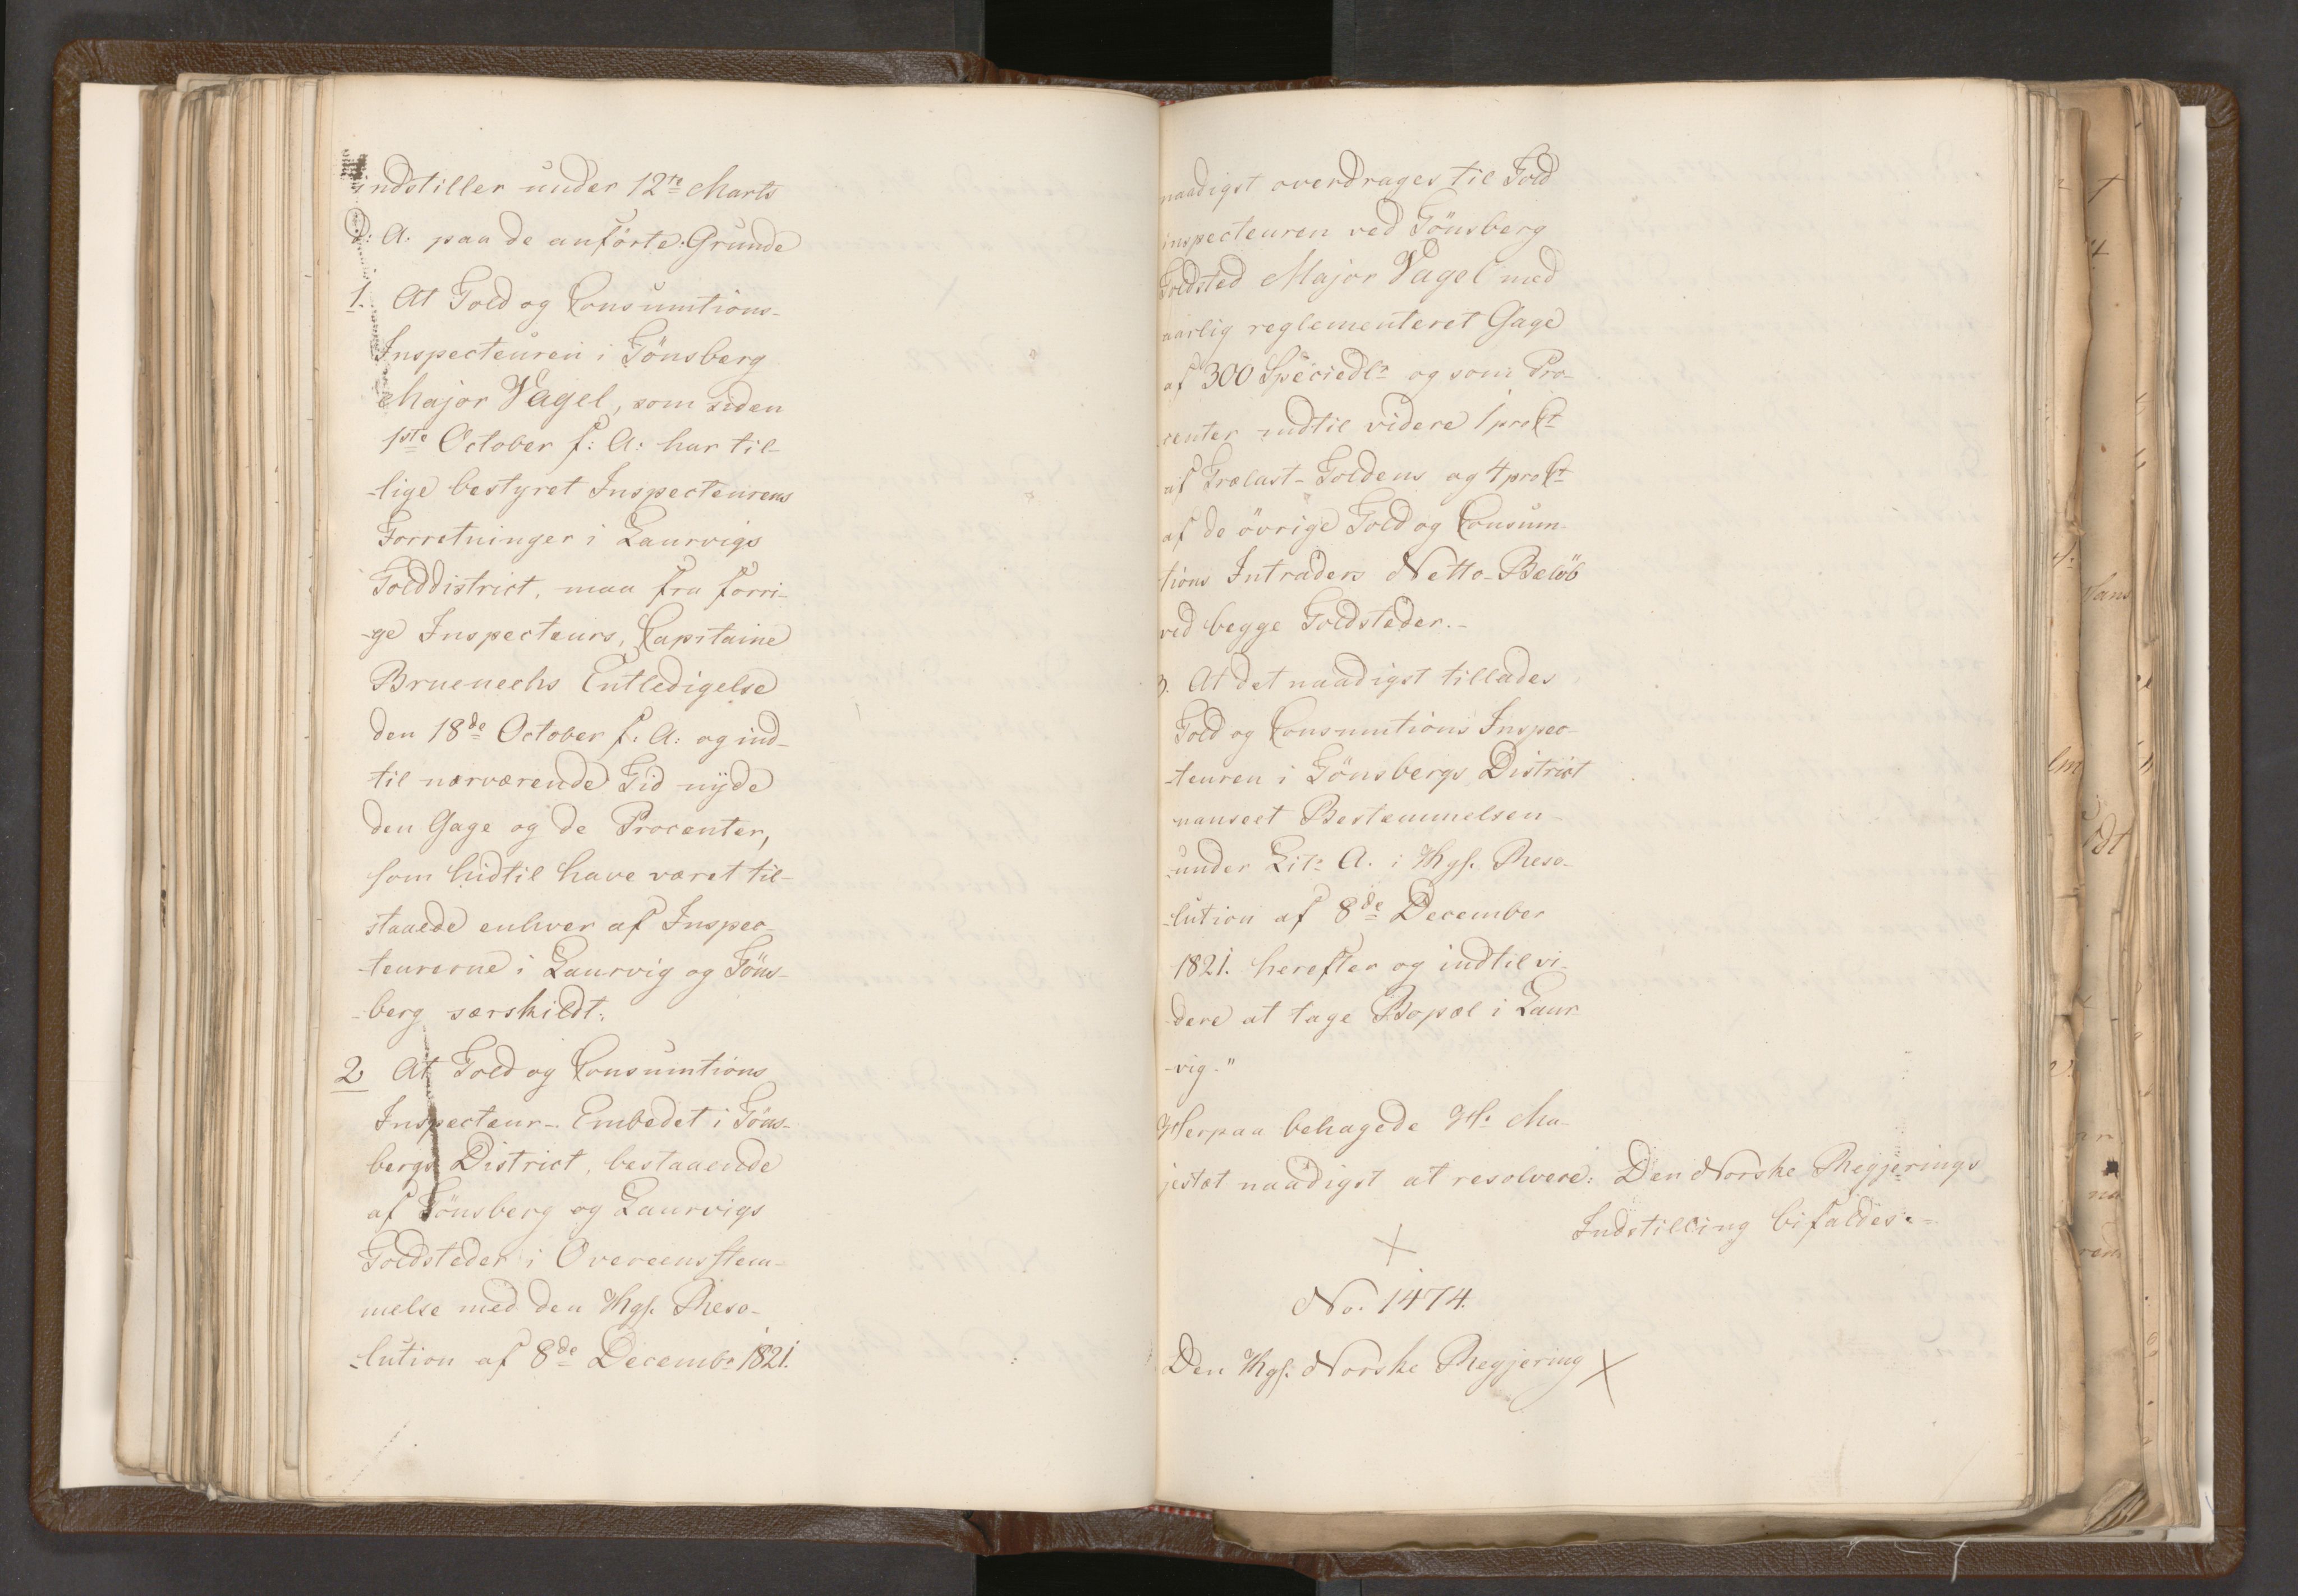 indstiller under 12te Marts
d: A. paa de anförte Grunde
1. At Told og Consumtions-
Inspecteuren i Tönsberg
Major Vagel, som siden
1ste October f: A: har til-
-lige bestyret Inspecteurens
Forretninger i Laurvigs
Tolddistrict, maa fra forri-
-ge Inspecteurs, Capitaine
Bruenechs Entledigelse
den 18de October f: A: og ind-
-til nærværende Tid nÿde
den Gage og de Procenter,
som hidtil have været til-
staaede enhver af Inspec-
-teurerne i Laurvig og Töns-
-berg særskildt.
2 At Told og Consumtions
Inspecteur-Embedet i Töns-
bergs District, bestaaende
af Tönsberg og Laurvigs
Toldsteder i Overeensstem-
melse med den Kgl. Reso-
-lution af 8de Decembr 1821.
naadigst overdrages til Told
inspecteuren ved Tönsberg
Toldsted Major Vagel med
aarlig reglementeret Gage
af 300 Speciedlr og som Pro-
center indtil videre 1 proCt
af Trælast-Toldens og 4 proCt
af de övrige Told og Consum-
tions Intraders Netto-Belöb
ved begge Toldsteder.-
3. At det naadigst tillades
Told og Consumtions Inspec-
-teuren i Tönsbergs District
uanseet Bestemmelsen
under Litr A. i Kgl. Reso-
-lution af 8de December
1821. herefter og indtil vi-
dere at tage Bopæl i Laur
-vig."
Herpaa behagede H. Ma-
jestæt naadigst at resolvere: Den Norske Regjerings
Indstilling bifaldes.-
No. 1474.
Den Kgl. Norske Regjering